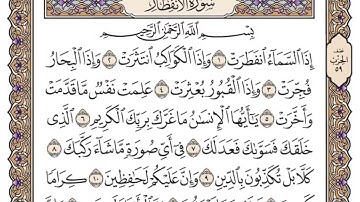 سورة الانفطار
بِسْمِ ٱللَّهِ ٱلرَّحْمَٰنِ ٱلرَّحِيمِ
إِذَا ٱلسَّمَآءُ ٱنفَطَرَتْ ١ وَإِذَا ٱلْكَوَاكِبُ ٱنتَثَرَتْ ٢ وَإِذَا ٱلْبِحَارُ
فُجِّرَتْ ٣ وَإِذَا ٱلْقُبُورُ بُعْثِرَتْ ٤ عَلِمَتْ نَفْسٌ مَّا قَدَّمَتْ
وَأَخَّرَتْ ٥ يَٰٓأَيُّهَا ٱلْإِنسَٰنُ مَا غَرَّكَ بِرَبِّكَ ٱلْكَرِيمِ ٦ ٱلَّذِى
خَلَقَكَ فَسَوَّىٰكَ فَعَدَلَكَ ٧ فِىٓ أَىِّ صُورَةٍ مَّا شَآءَ رَكَّبَكَ ٨
كَلَّا بَلْ تُكَذِّبُونَ بِٱلدِّينِ ٩ وَإِنَّ عَلَيْكُمْ لَحَٰفِظِينَ ١٠ كِرَامًا
نصف
الحزب
٥٩